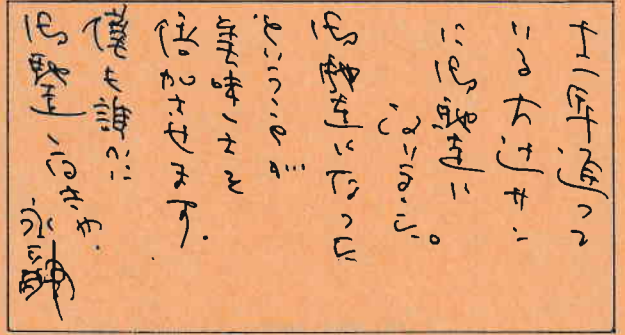 十一年通って
いる大辻サン
に御馳走に
なりました。
御馳走になった
ということが
美味しさを
倍加させます。
僕も誰かに
御馳走しなきゃ。
永六輔